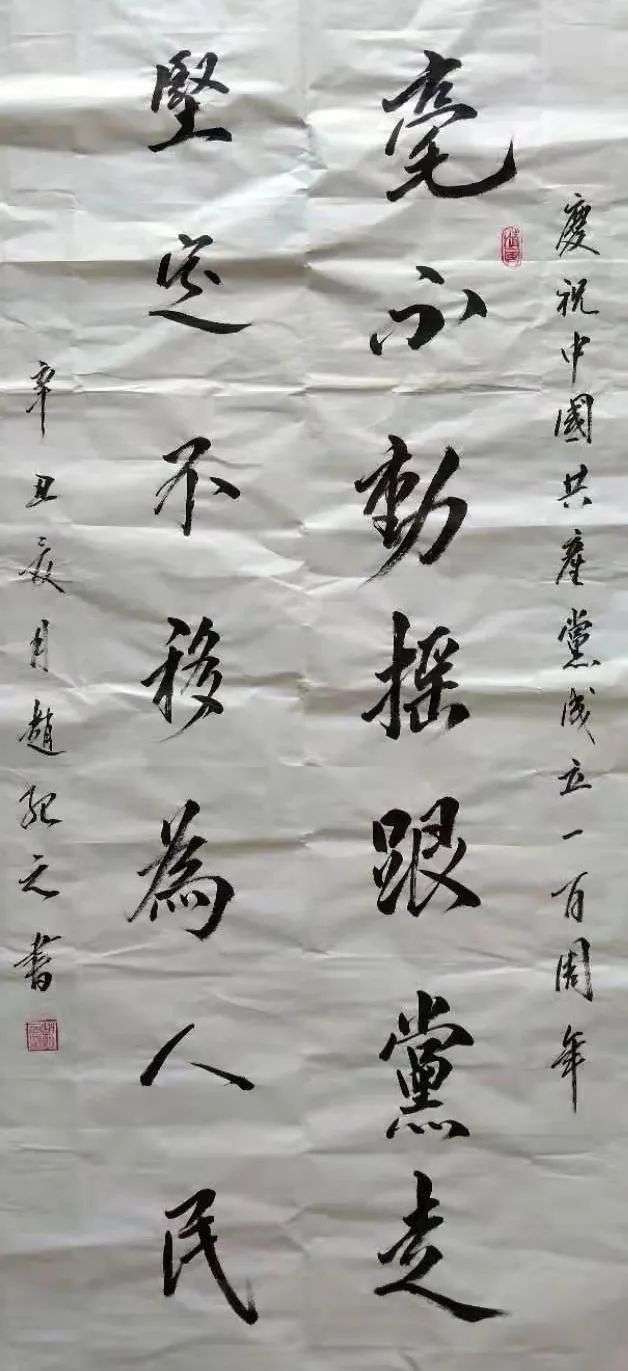 慶祝中國共產黨成立一百周年
毫不動搖跟黨走
堅定不移為人民
辛丑夏月趙記元書